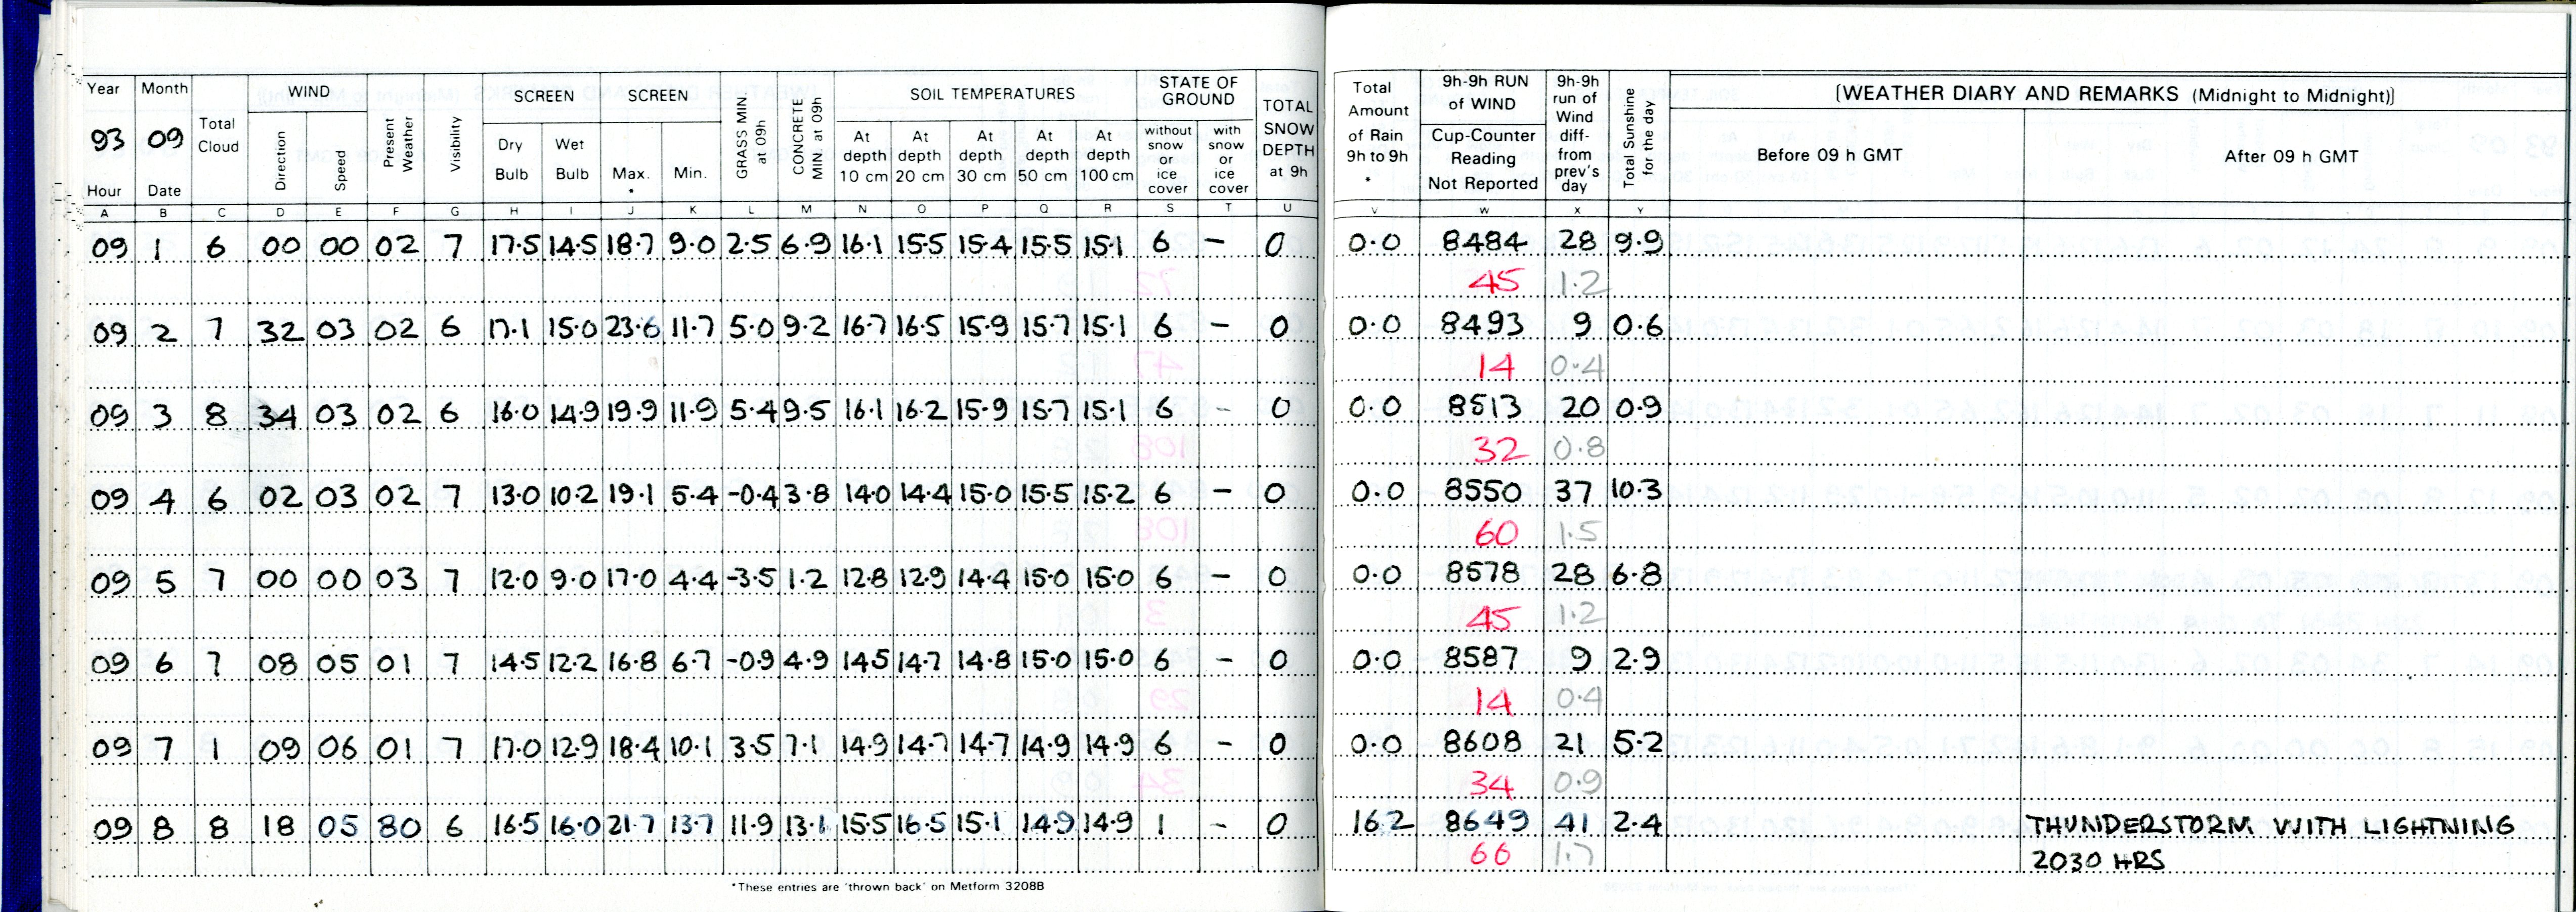 Year Month Total Cloud WIND Present Weather Visibility SCREEN SCREEN GRASS MIN at 09h CONCRETE MIN at 09h SOIL TEMPERATURES STATE OF GROUND TOTAL SNOW DEPTH at 9h Total Amount of Rain 9h to 9h * 9h-9h RUN of WIND 9h-9h run of Wind diff- from prev's day Total Sunshine for the day [WEATHER DIARY AND REMARKS (Midnight to Midnight)]
93 09 Direction Speed Dry Bulb Wet Bulb Max. * Min. At depth 10 cm At depth 20 cm At depth 30 cm At depth 50 cm At depth 100 cm without snow or ice cover with snow or ice cover Cup-Counter Reading Not Reported Before 09 h GMT After 09 h GMT
Hour Date
A B C D E F G H I J K L M N O P Q R S T U V W X Y
09 1 6 00 00 02 7 17.5 14.5 18.7 9.0 2.5 6.9 16.1 15.5 15.4 15.5 15.1 6 – 0 0.0 8484 28 9.9
45 1.2
09 2 7 32 03 02 6 17.1 15.0 23.6 11.7 5.0 9.2 16.7 16.5 15.9 15.7 15.1 6 – 0 0.0 8493 9 0.6
14 0.4
09 3 8 34 03 02 6 16.0 14.9 19.9 11.9 5.4 9.5 16.1 16.2 15.9 15.7 15.1 6 – 0 0.0 8513 20 0.9
32 0.8
09 4 6 02 03 02 7 13.0 10.2 19.1 5.4 -0.4 3.8 14.0 14.4 15.0 15.5 15.2 6 – 0 0.0 8550 37 10.3
60 1.5
09 5 7 00 00 03 7 12.0 9.0 17.0 4.4 -3.5 1.2 12.8 12.9 14.4 15.0 15.0 6 – 0 0.0 8578 28 6.8
45 1.2
09 6 7 08 05 01 7 14.5 12.2 16.8 6.7 -0.9 4.9 14.5 14.7 14.8 15.0 15.0 6 – 0 0.0 8587 9 2.9
14 0.4
09 7 1 09 06 01 7 17.0 12.9 18.4 10.1 3.5 7.1 14.9 14.7 14.7 14.9 14.9 6 – 0 0.0 8608 21 5.2
34 0.9
09 8 8 18 05 80 6 16.5 16.0 21.7 13.7 11.9 13.1 15.5 16.5 15.1 14.9 14.9 1 – 0 16.2 8649 41 2.4 THUNDERSTORM WITH LIGHTNING
66 1.7 2030 HRS
*These entries are 'thrown back' on Metform 3208B